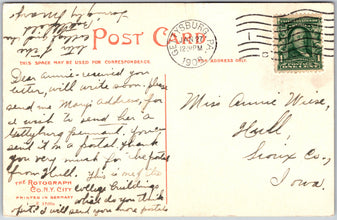 POST CARD
THIS SPACE MAY BE USED FOR CORRESPONDENCE.
FOR ADDRESS ONLY
GETTYSBURG, PA.
12-30PM
190
Dear Annie - received your
letter, will write soon. Please
send me Mary's address, for
I wish to send her a
Gettysburg pennant. You
sent it in a postal. Thank
you very much for the postal
from Hull. This is one of the
college buildings
which do you think
I will send you more postals
THE ROTOGRAPH
CO., N.Y. CITY
PRINTED IN GERMANY
Miss Annie Wise,
Hull,
Sioux Co.,
Iowa.